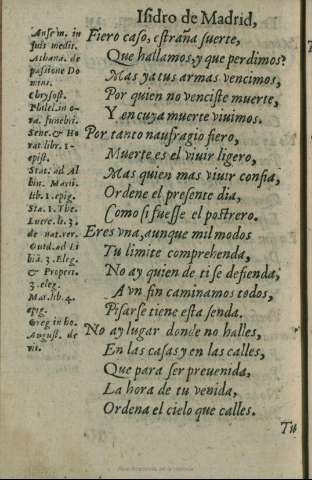 Isidro de Madrid,
Fiero caso, estraña suerte,
Que hallamos, y que perdimos?
Mas ya tus armas vencimos,
Por quien no venciste muerte,
Y en cuya muerte viuimos.
Por tanto naufragio fiero,
Muerte es el viuir ligero,
Mas quien mas viuir confia,
Ordene el presente dia,
Como si fuesse el postrero.
Eres vna, aunque mil modos
Tu limite comprehenda,
No ay quien de ti se defienda,
A vn fin caminamos todos,
Pisarse tiene esta senda.
No ay lugar donde no halles,
En las casas y en las calles,
Que para ser preuenida,
La hora de tu venida,
Ordena el cielo que calles.
Tu
Anselm. in
suis medit.
Athana. de
passione Do
mini.
Chrysost.
Philel. in o-
ra. funebri.
Sene. & Ho
rat. libr. 1.
epist.
Stat. ad Al
bin. Marti.
lib. 1. epig.
Sta. 1. The.
Lucre. li. 3.
de nat. rer.
Ouid. ad Li
biã. 3. Eleg.
& Propert.
3. eleg.
Mar. lib. 4.
epig.
Greg in ho.
August. de